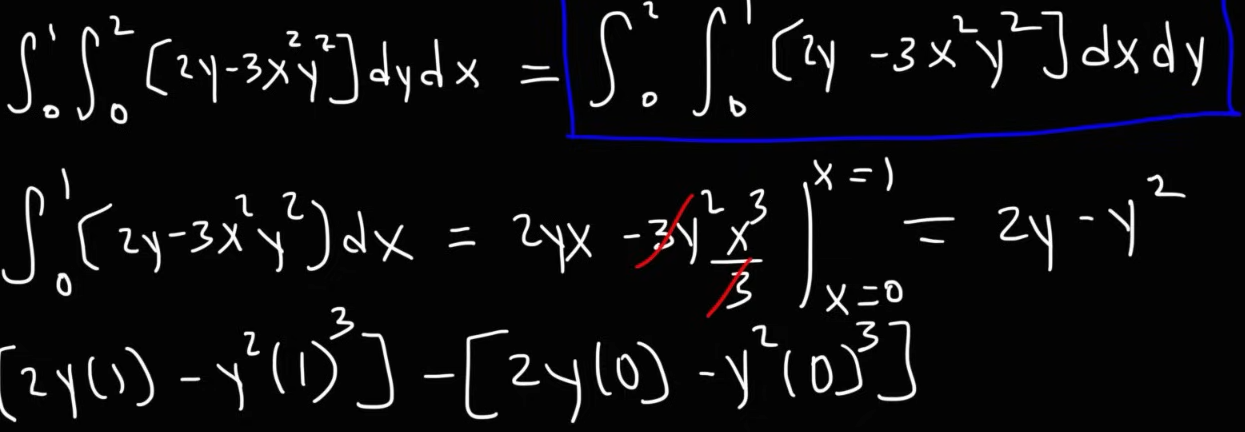 ∫₀¹ ∫₀² [2y-3x²y²] dy dx = ∫₀² ∫₀¹ [2y -3x²y²] dx dy
∫₀¹ (2y-3x²y²) dx = 2yx - 3y² x³/3 |ₓ₌₀ˣ⁼¹ = 2y - y²
[2y(1) - y²(1)³] - [2y(0) - y²(0)³]